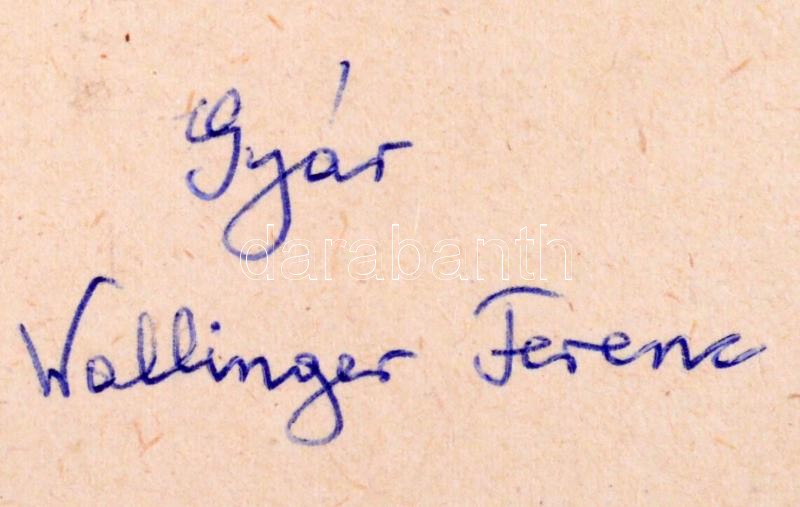 Gyár
darabanth
Wallinger Ferenc